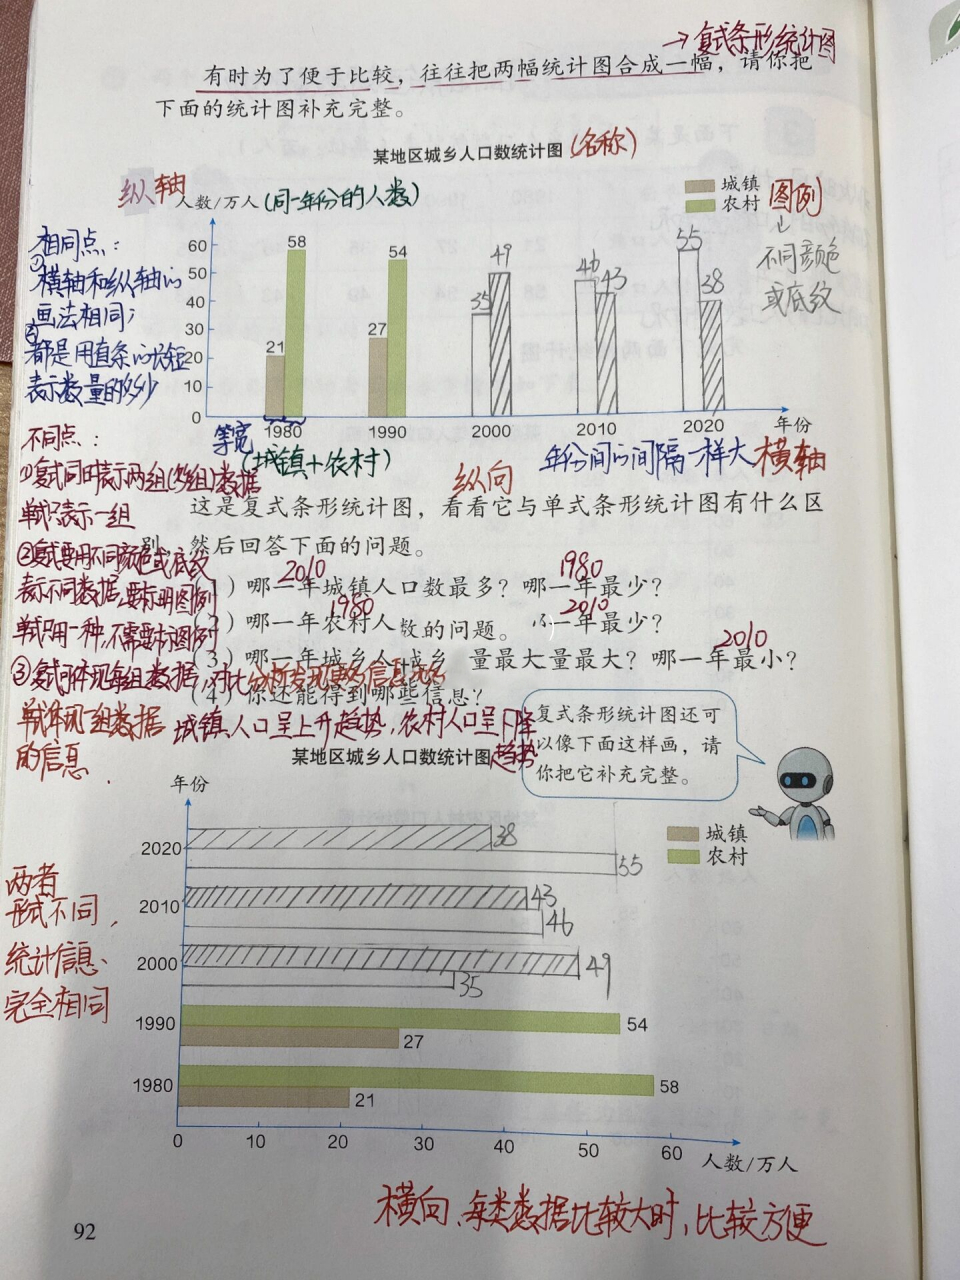 →复式条形统计图
有时为了便于比较，往往把两幅统计图合成一幅，请你把
下面的统计图补充完整。
某地区城乡人口数统计图(名称)
纵轴
人数/万人(同一年份的人数)
城镇
农村
图例
↓
不同颜色
或底纹
60
50
40
30
20
10
0
21
58
27
54
35
49
46
43
55
38
1980
1990
2000
2010
2020
年份
等宽
(城镇+农村)
纵向
年份间的间隔一样大
横轴
相同点：
①
横轴和纵轴的
画法相同；
②
都是用直条的长短
表示数量的多少
不同点：
①复式同时表示两组(多组)数据
单式只表示一组
②复式要用不同颜色或底纹
表示不同数据,要标明图例
单式只用一种,不需要标图例
③复式可体现每组数据,对比分析发现更多的信息
单式体现一组数据
的信息
这是复式条形统计图，看看它与单式条形统计图有什么区
别，然后回答下面的问题。
2010
1980
1）哪一年城镇人口数最多？哪一年最少？
1980
2010
2）哪一年农村人 数的问题。 一年最少？
2010
3）哪一年城乡人 城乡 量最大量最大？哪一年最小？
（4）你还能得到哪些信息？
城镇人口呈上升趋势,农村人口呈下降
趋势
复式条形统计图还可
以像下面这样画，请
你把它补充完整。
某地区城乡人口数统计图
年份
城镇
农村
2020
38
55
2010
43
46
2000
49
35
1990
54
27
1980
58
21
0
10
20
30
40
50
60
人数/万人
两者
形式不同，
统计信息、
完全相同
横向、每类数据比较大时，比较方便
92